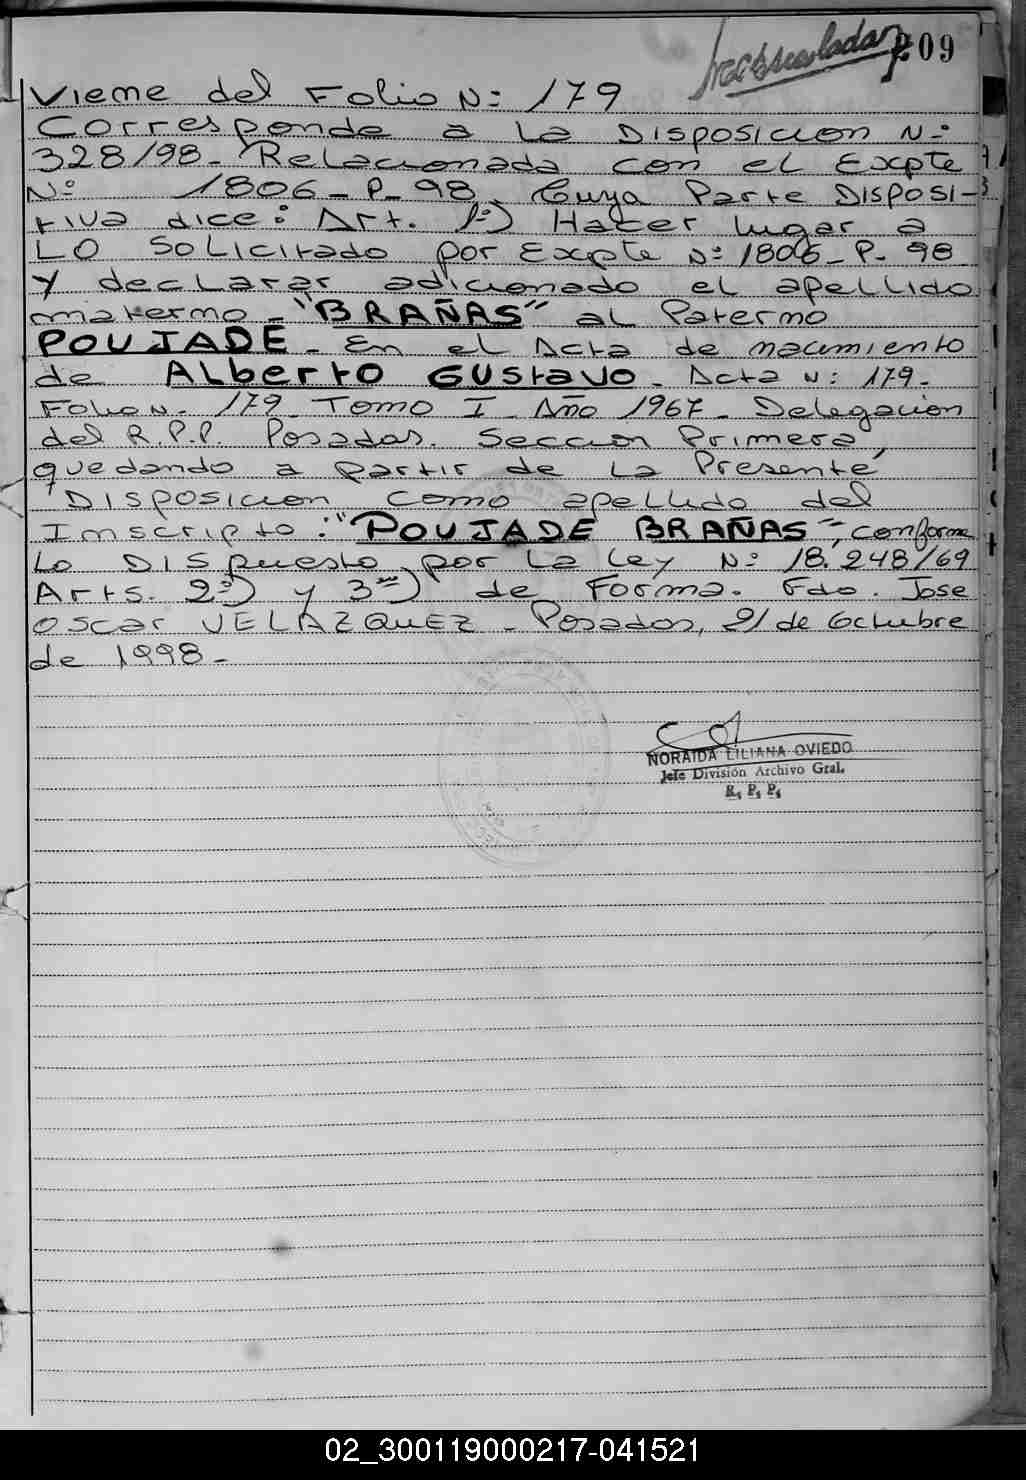 209
Viene del Folio N: 179
Corresponde a la Disposicion N-:
328/98- Relacionada con el Expte
N: 1806-P-98. Cuya Parte Disposi-
tiva dice: Art. 1:) Hacer lugar a
lo solicitado por Expte N: 1806-P-98
y declarar adicionado el apellido
materno - "BRAÑAS" al Paterno
POUJADE - En el Acta de nacimiento
de Alberto Gustavo - Acta N: 179-
Folio N- 179- Tomo I- Año 1967- Delegacion
del R.P.P. Posadas. Seccion Primera,
quedando a partir de la Presente
Disposicion como apellido del
Inscripto: "POUJADE BRAÑAS", conforme
Lo Dispuesto por la Ley N: 18.248/69
Arts. 2º) y 3º) de Forma. Fdo. Jose
Oscar VELAZQUEZ - Posadas, 21 de Octubre
de 1998-
NORAIDA LILIANA OVIEDO
Jefe División Archivo Gral.
R. P. P.
02_300119000217-041521